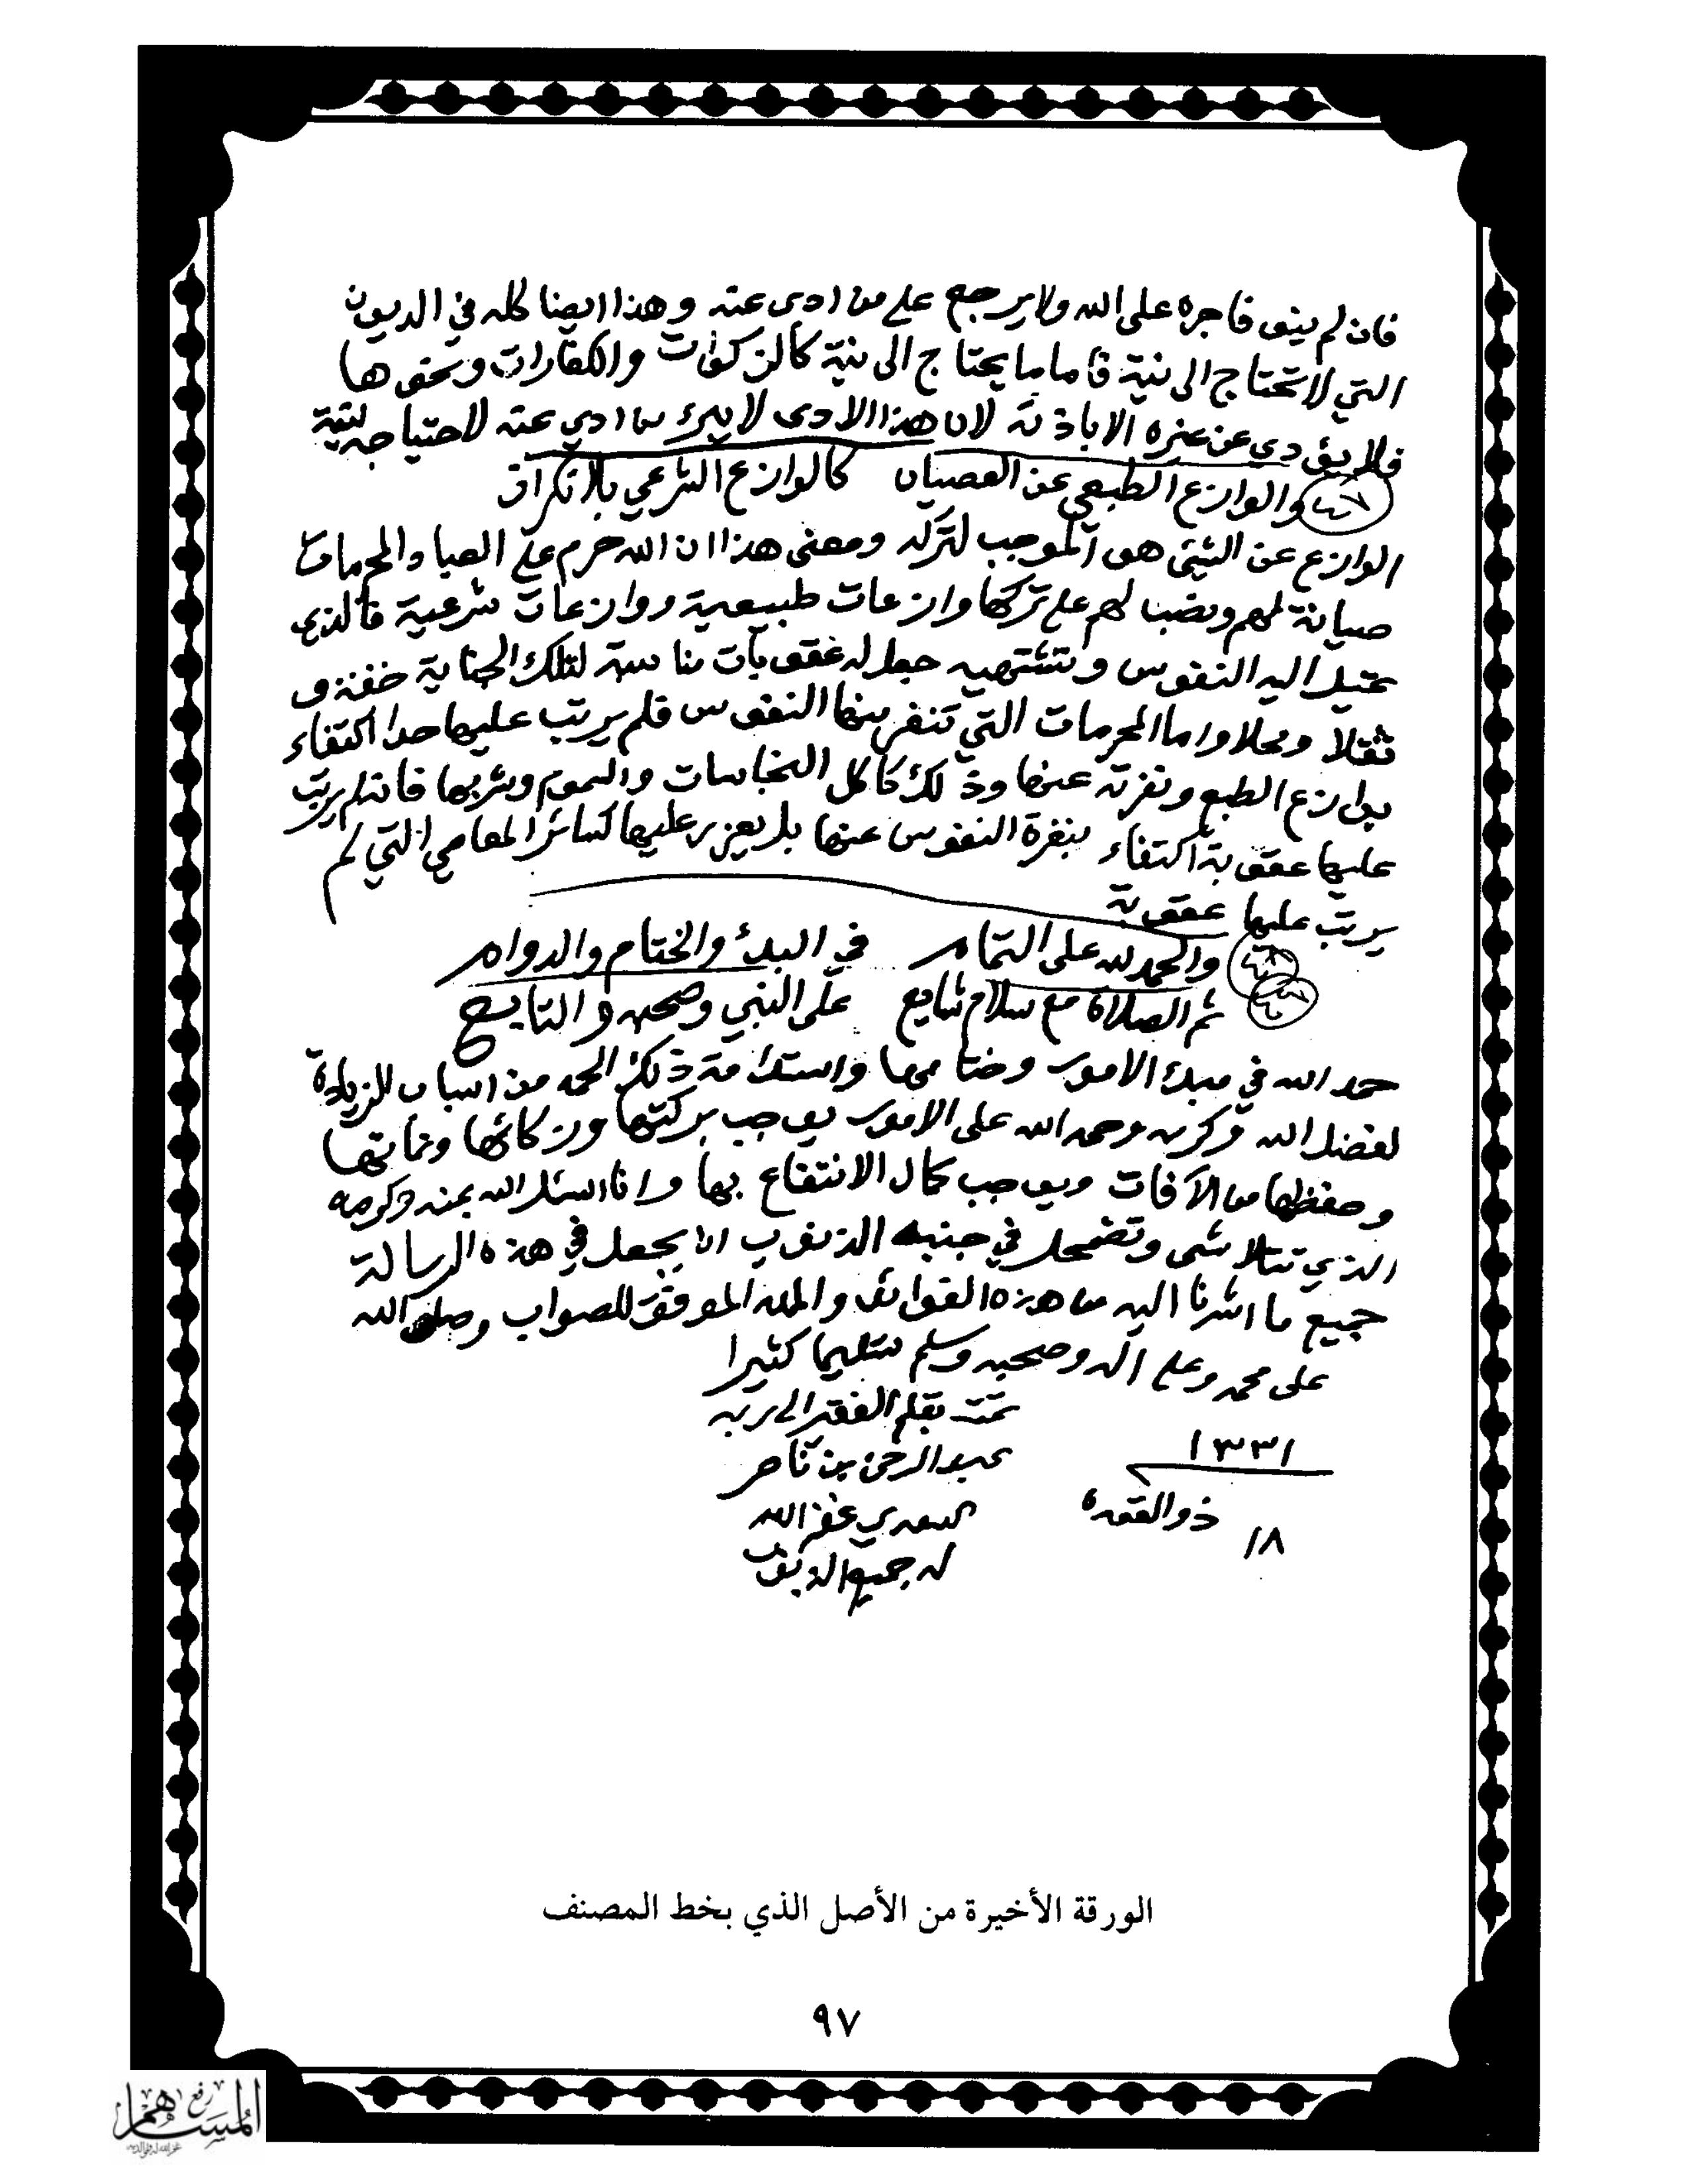 فان لم ينو فاجره على الله ولا يرجع على من ادى عنه وهذا ايضا كله في الديون
التي لا تحتاج الى نية فاما ما يحتاج الى نية كالزكوات والكفارات ونحوها
فلا يؤدي عن غيره الا باذنه لان هذا الادى لا يبرئ من ادي عنه لاحتياجه لنية
والوازع الطبعي عن العصيان كالوازع الشرعي بلا نكران
الوازع عن الشئ هو الموجب لتركه ومعنى هذا ان الله حرم على المحرمات
صيانة لهم ونصب لهم على تركها وازعات طبيعية ووازعات شرعية فالذي
تميل اليه النفوس وتشتهيه جعل له عقوبات مناسبة لتلك الجناية خفة و
ثقلا ومحلا واما المحرمات التي تنفر منها النفوس فلم يرتب عليها حدا اكتفاء
بوازع الطبع ونفرته عنها وذلك كاكل النجاسات والسموم وشربها فانه لم يرتب
عليها عقوبة اكتفاء بنفرة النفوس عنها بل يعزر عليها كسائر المعاصي التي لم
يرتب عليها عقوبة
والحمد لله على التمام في البدئ والختام والدوام
ثم الصلاة مع سلام شايع على النبي وصحبه والتابع
حمد الله في مبدئ الامور وختامها واستدامة ذلك الحمد من اسباب الزيادة
لفضل الله وكرمه وحمد الله على الامور يوجب بركتها وزكائها ونمائها
وحفظها من الآفات ويوجب كمال الانتفاع بها وانا اسئل الله بمنه وكرمه
الذي تتلاشى وتضمحل في جنبه الذنوب ان يجعل في هذه الرسالة
جميع ما اشرنا اليه من هذه الفوائد والله الموفق للصواب وصلى الله
على محمد وعلى آله وصحبه وسلم تسليما كثيرا
تمت بقلم الفقير الى ربه
١٣٣١ عبد الرحمن بن ناصر
١٨ ذو القعدة السعدي غفر الله
له جميع الذنوب
الورقة الأخيرة من الأصل الذي بخط المصنف
٩٧
رفع
المساهم